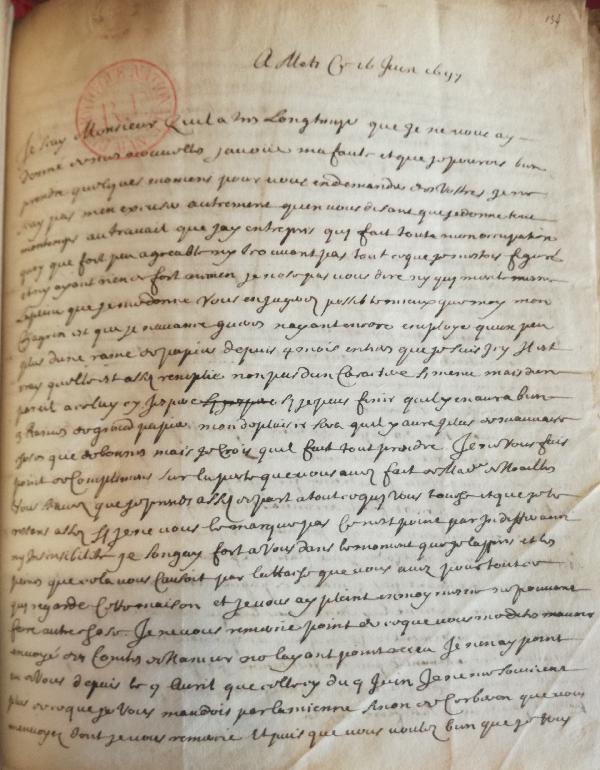 134
A Mets Ce 16 Juin 1697
Je scay Monsieur quil a tres Longtemps que Je ne vous ay
donne de mes nouvelles Javoue ma faute et que Je pouvois bien
prendre quelques momens pour vous en demander des vostres Je ne
scay pas men excuser autrement quen vous disant que Je donne tout
mon temps au travail que Jay entrepris qui fait toute mon occupation
quoy que fort peu agreable ny trouvant pas tout ce que Je mestois figuré
et ny ayant rien de fort ancien Je nose pas vous dire ny
que Je me donne vous en Jugerez possible mieux que moy mon
Chagrin est que Je navance gueres nayant encore employé quun peu
plus dune rame de papier depuis 4 mois entiers que Je suis Icy Il est
vray quelle est assez remplie non pas dun Caractere si menu mais dun
pareil a celuy cy si Je puis finir quil y en aura bien
3 Rames de grand papier mon deplaisir sera quil y aura plus de mauvaises
choses que de bonnes mais Je Crois quil faut tout prendre Je ne vous fais
point de Complimens sur la perte que vous avez fait de Mad. de Noailles
vous scavez que Je prends assez de part a tout ce qui vous touche et que Je le
ressens assez si Je ne vous le marque pas Ce nest point par Indifference
ny Insensibilité Je songay fort a vous dans le moment que Je lappris et les
peines que cela vous Causoit par lattache que vous avez pour tout ce
qui regarde Cette maison et Je vous ay plaint en moy mesme ne pouvant
faire autre chose Je ne vous remercie point de ce que vous me dites mavoir
envoyé des Comtes de Namur ne layant point receu Je nay point
eu de vous depuis le 9 Avril que celle cy du 9 Juin Je ne me souviens
plus de ce que Je vous mandois par la mienne de Corbeon que vous
menvoyez dont Je vous remercie Et puis que vous voulez bien que Je vous